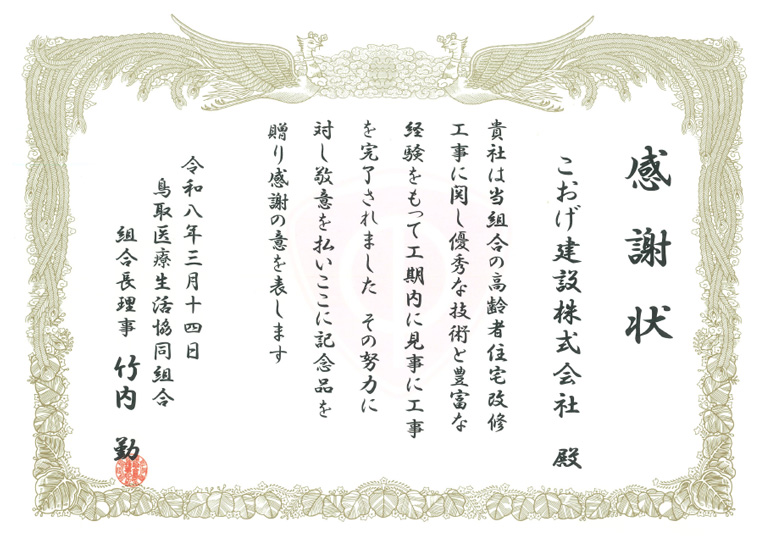 感謝状
こおげ建設株式会社 殿
貴社は当組合の高齢者住宅改修
工事に関し優秀な技術と豊富な
経験をもって工期内に見事に工事
を完了されました その努力に
対し敬意を払いここに記念品を
贈り感謝の意を表します
令和八年三月十四日
鳥取医療生活協同組合
組合長理事 竹内 勤